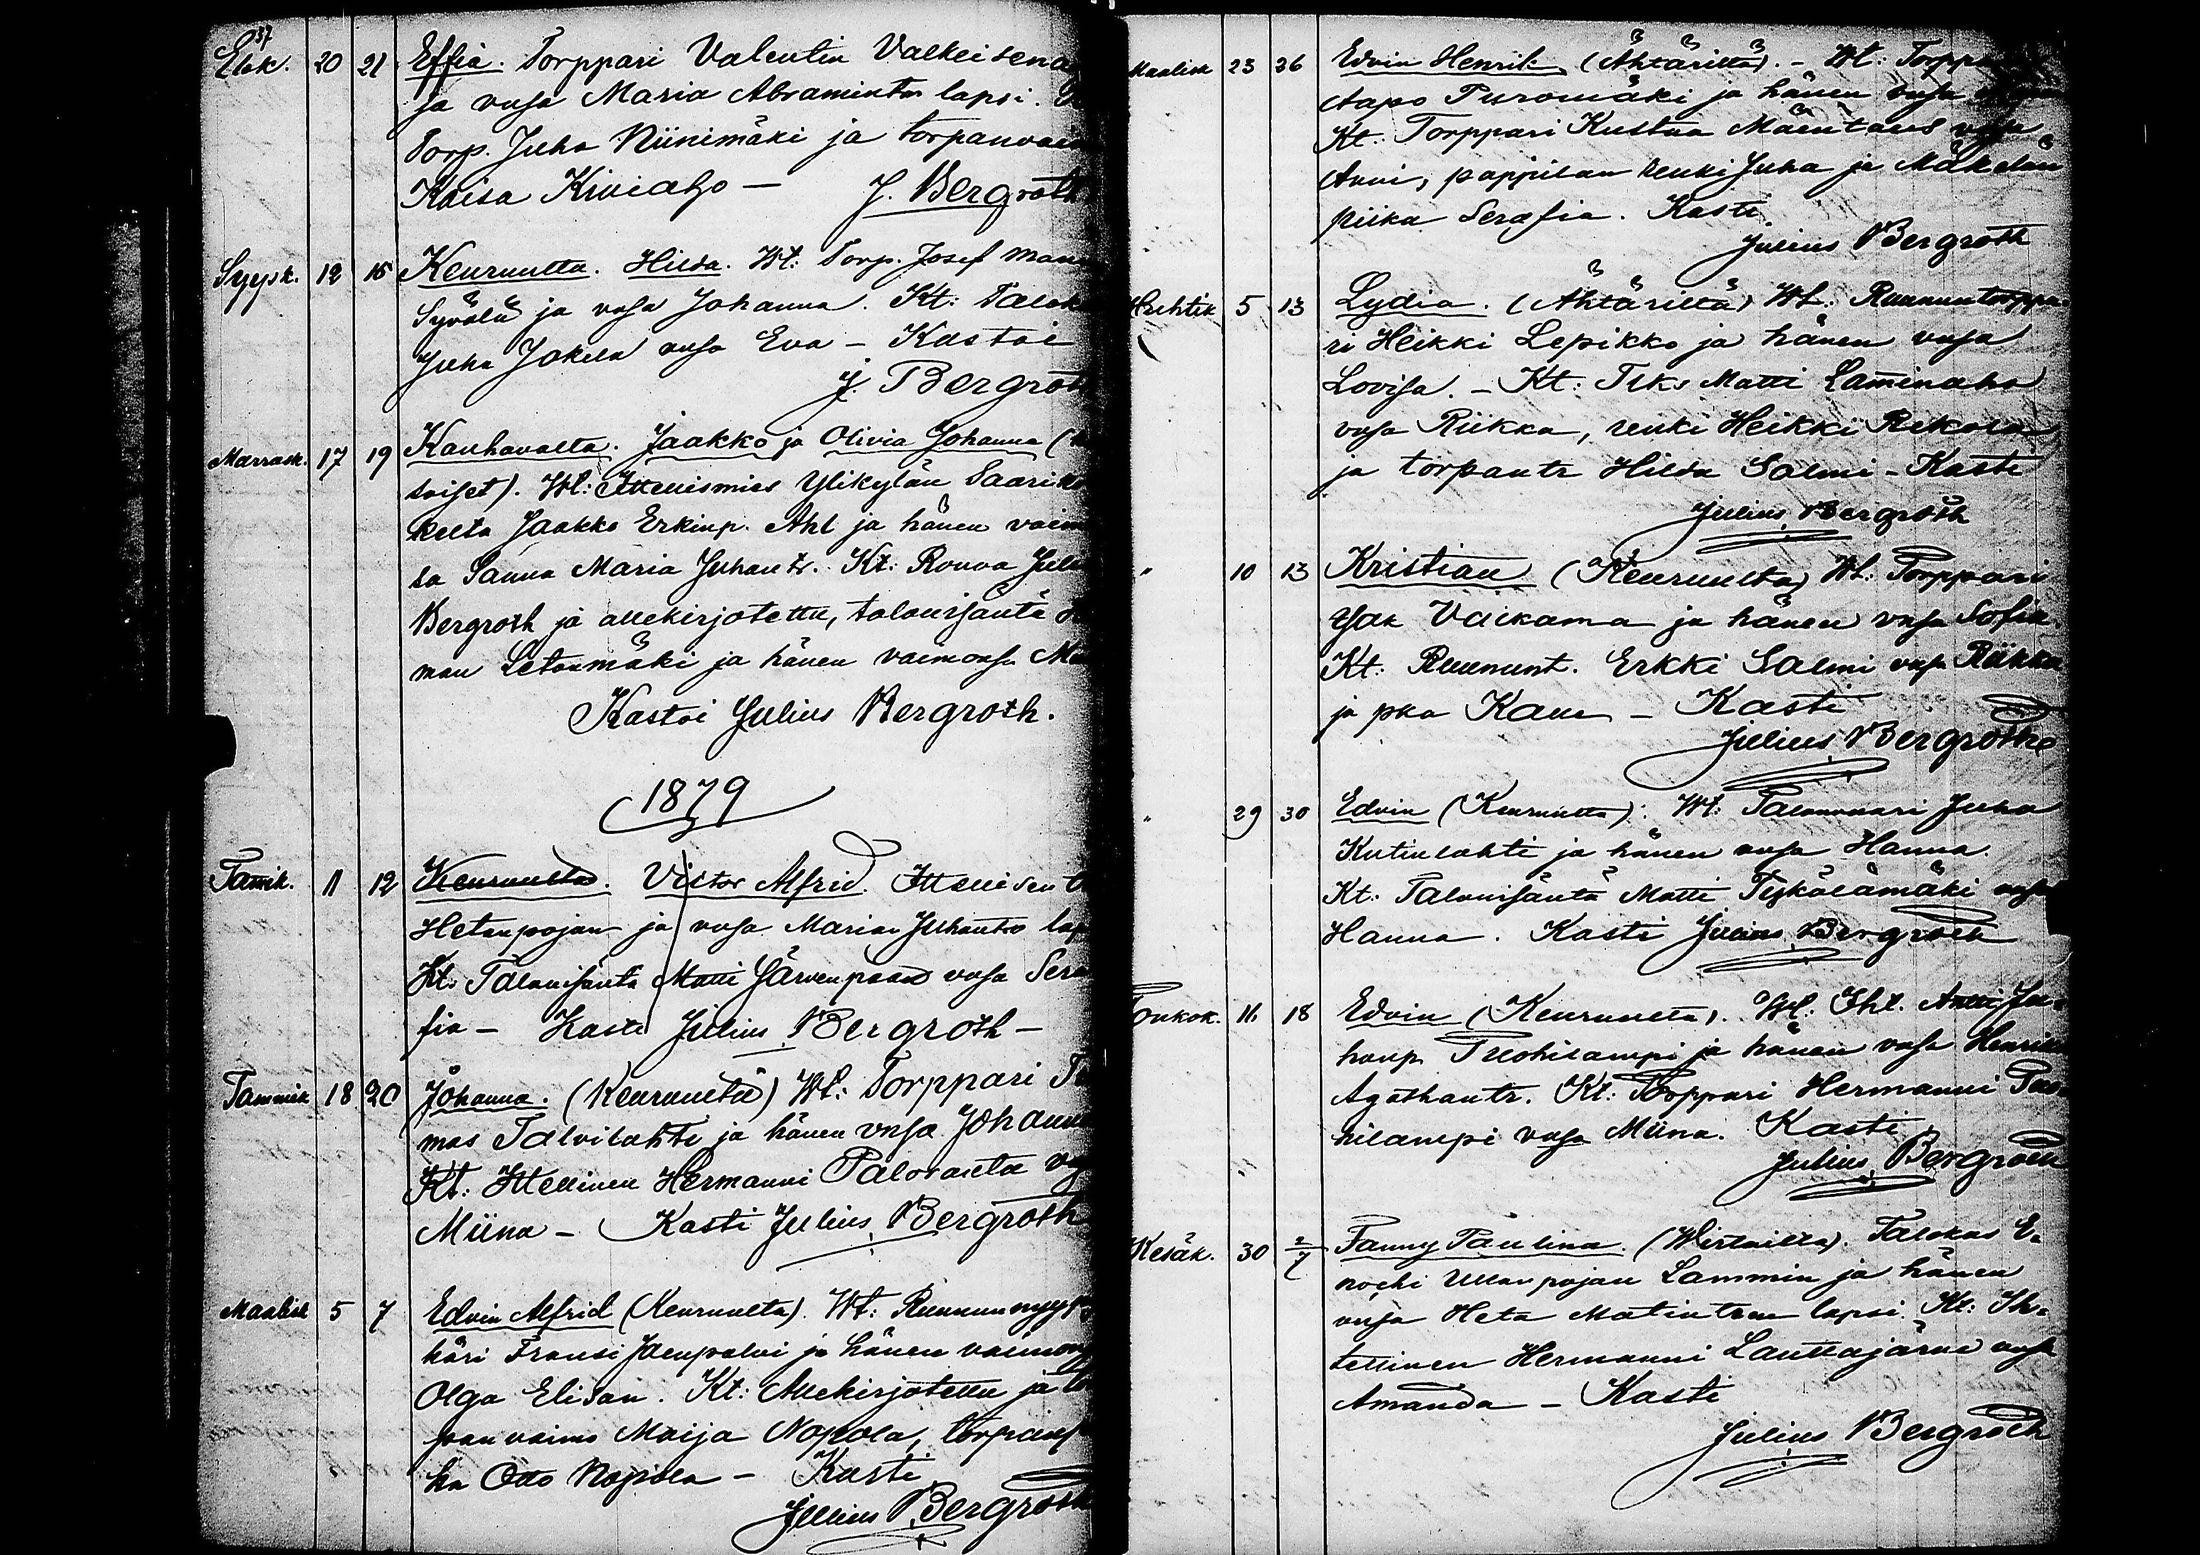 37
Elok. 20 21 Effia. Torppari Valentin Valkeisena
ja vaja Maria Abramintr lapsi.
Torp. Juha Niinimäki ja torpanvai
Kaisa Kiviaho — J. Bergroth
Syysk. 12 15 Keuruulta. Hilda. Wt: Torp. Josef Mann
Syvälä ja vaja Johanna. Kt: Talok
Juha Jokela vaja Eva – Kastoi
J. Bergroth
Marrask. 17 19 Kauhavalta. Jaakko ja Olivia Johanna (
soiset). Wt: Ittellismies Ylikylän Saarik
kelta Jaakko Erkinp. Ahl ja hänen vaim
sa Sanna Maria Juhantr. Kt: Rouva Juli
Bergroth ja allekirjotettu, talonisäntä
man Letonmäki ja hänen vaimonsa
Kastoi Julius Bergroth.
1879
Tamik. 11 12 Keuruulta. Victor Alfrid. Ittellisen
Hetanpojan ja vaja Marian Juhantr lap
Kt: Talonisäntä Matti Järvenpään vaja Sera
fia – Kasti Julius Bergroth –
Tammik 18 20 Johanna. (Keuruulta) Wt: Torppari
mas Talvilahti ja hänen vaja Johanna
Kt: Ittellinen Hermanni Paloranta
Miina – Kasti Julius Bergroth
Maalisk 5 7 Edvin Alfrid (Keuruulta). Wt: Ruununnyyp
käri Fransi Jaenpalvi ja hänen vaimon
Olga Elisan. Kt: Allekirjotettu ja
pan vaimo Maija Nopola, torpanp
ka Otto Nopola – Kasti
Julius Bergroth
Maalisk 23 26 Edvin Henrik (Ähtäriltä). – Wt: Torppa
Aapo Puromäki ja hänen vaja
Kt: Torppari Kustaa Mäentaus vaja
Anni, pappilan renki Juha ja Mäkelän
piika Serafia. Kasti
Julius Bergroth
Huhtik 5 13 Lydia. (Ähtäriltä) Wt: Ruununtorppa-
ri Heikki Lepikko ja hänen vaja
Lovisa. – Kt: Tlks Matti Laminaho
vaja Riikka, renki Heikki Rekola
ja torpantr Hilda Salmi – Kasti
Julius Bergroth
" 10 13 Kristian (Keuruulta) Wt: Torppari
Isak Valkama ja hänen vaja Sofia.
Kt: Ruununt. Erkki Salmi vaja Riikka
ja pka – Kasti
Julius Bergroth
" 29 30 Edvin (Keuruulta): Wt: Talonvaari Juha
Kutinlahti ja hänen vaja Hanna.
Kt: Talonisäntä Matti Tykölämäki vaja
Hanna. Kasti Julius Bergroth
Toukok. 16 18 Edvin (Keuruulta). Wt: Iht. Antti Ju-
hanp. Tuohilampi ja hänen vaja Henrika
Agathantr. Kt: Torppari Hermanni Tuo-
hilampi vaja Miina. Kasti
Julius Bergroth
Kesäk. 30 2/7 Fanny Paulina (Wirtailta). Talokas E-
nochi Ullanpojan Lammin ja hänen
vaja Heta Matintran lapsi. Kt: It-
tellinen Hermanni Lauttajärvi vaja
Amanda – Kasti
Julius Bergroth